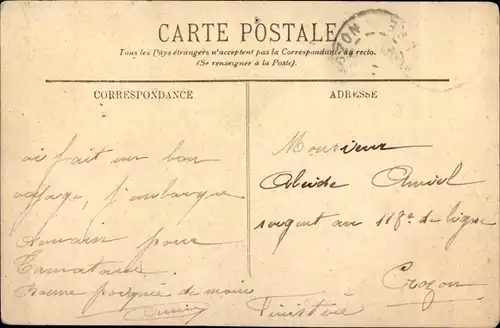 CARTE POSTALE
Tous les Pays étrangers n'acceptent pas la Correspondance au recto.
(Se renseigner à la Poste).
CORRESPONDANCE
ai fait un bon
voyage, j'embarque
demain pour
Tamatave.
Bonne poignée de mains
ADRESSE
Monsieur
Alcide
sergent au 118e de ligne
Crozon
Finistère
CROZON